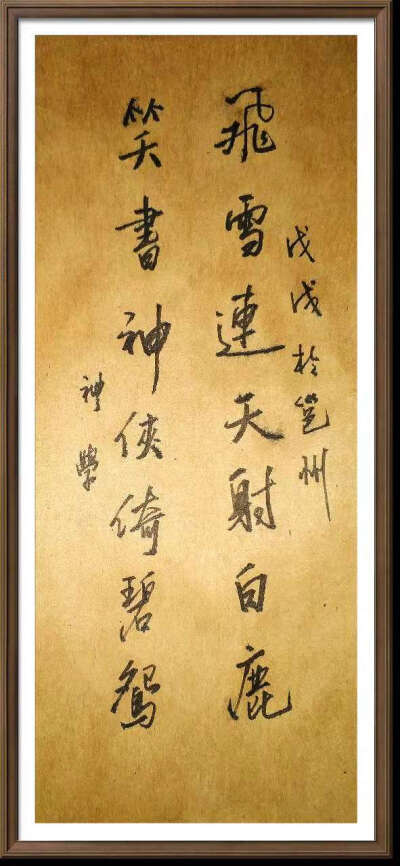 戊戌於邕州
飛雪連天射白鹿
笑書神俠倚碧鴛
神